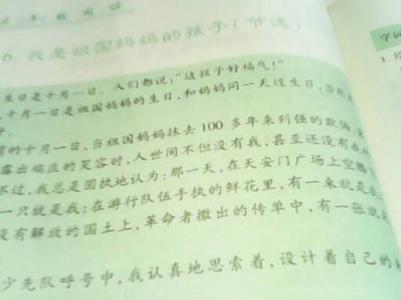 6. 我是祖国妈妈的孩子（节选）
生日是十月一日。人们都说：“这孩子好福气！”
十月一日是祖国妈妈的生日，和妈妈同一天过生日，当然
的十月一日，当祖国妈妈抹去100多年来列强的欺侮
露出端庄的笑容时，人世间不但没有我，甚至还没有我
不过，我总是固执地认为：那一天，在天安门广场上空腾飞
一只就是我；在游行队伍手执的鲜花里，有一束就是
没有解放的国土上，革命者撒出的传单中，有一张就是
少先队呼号中，我认真地思索着，设计着自己的
字词